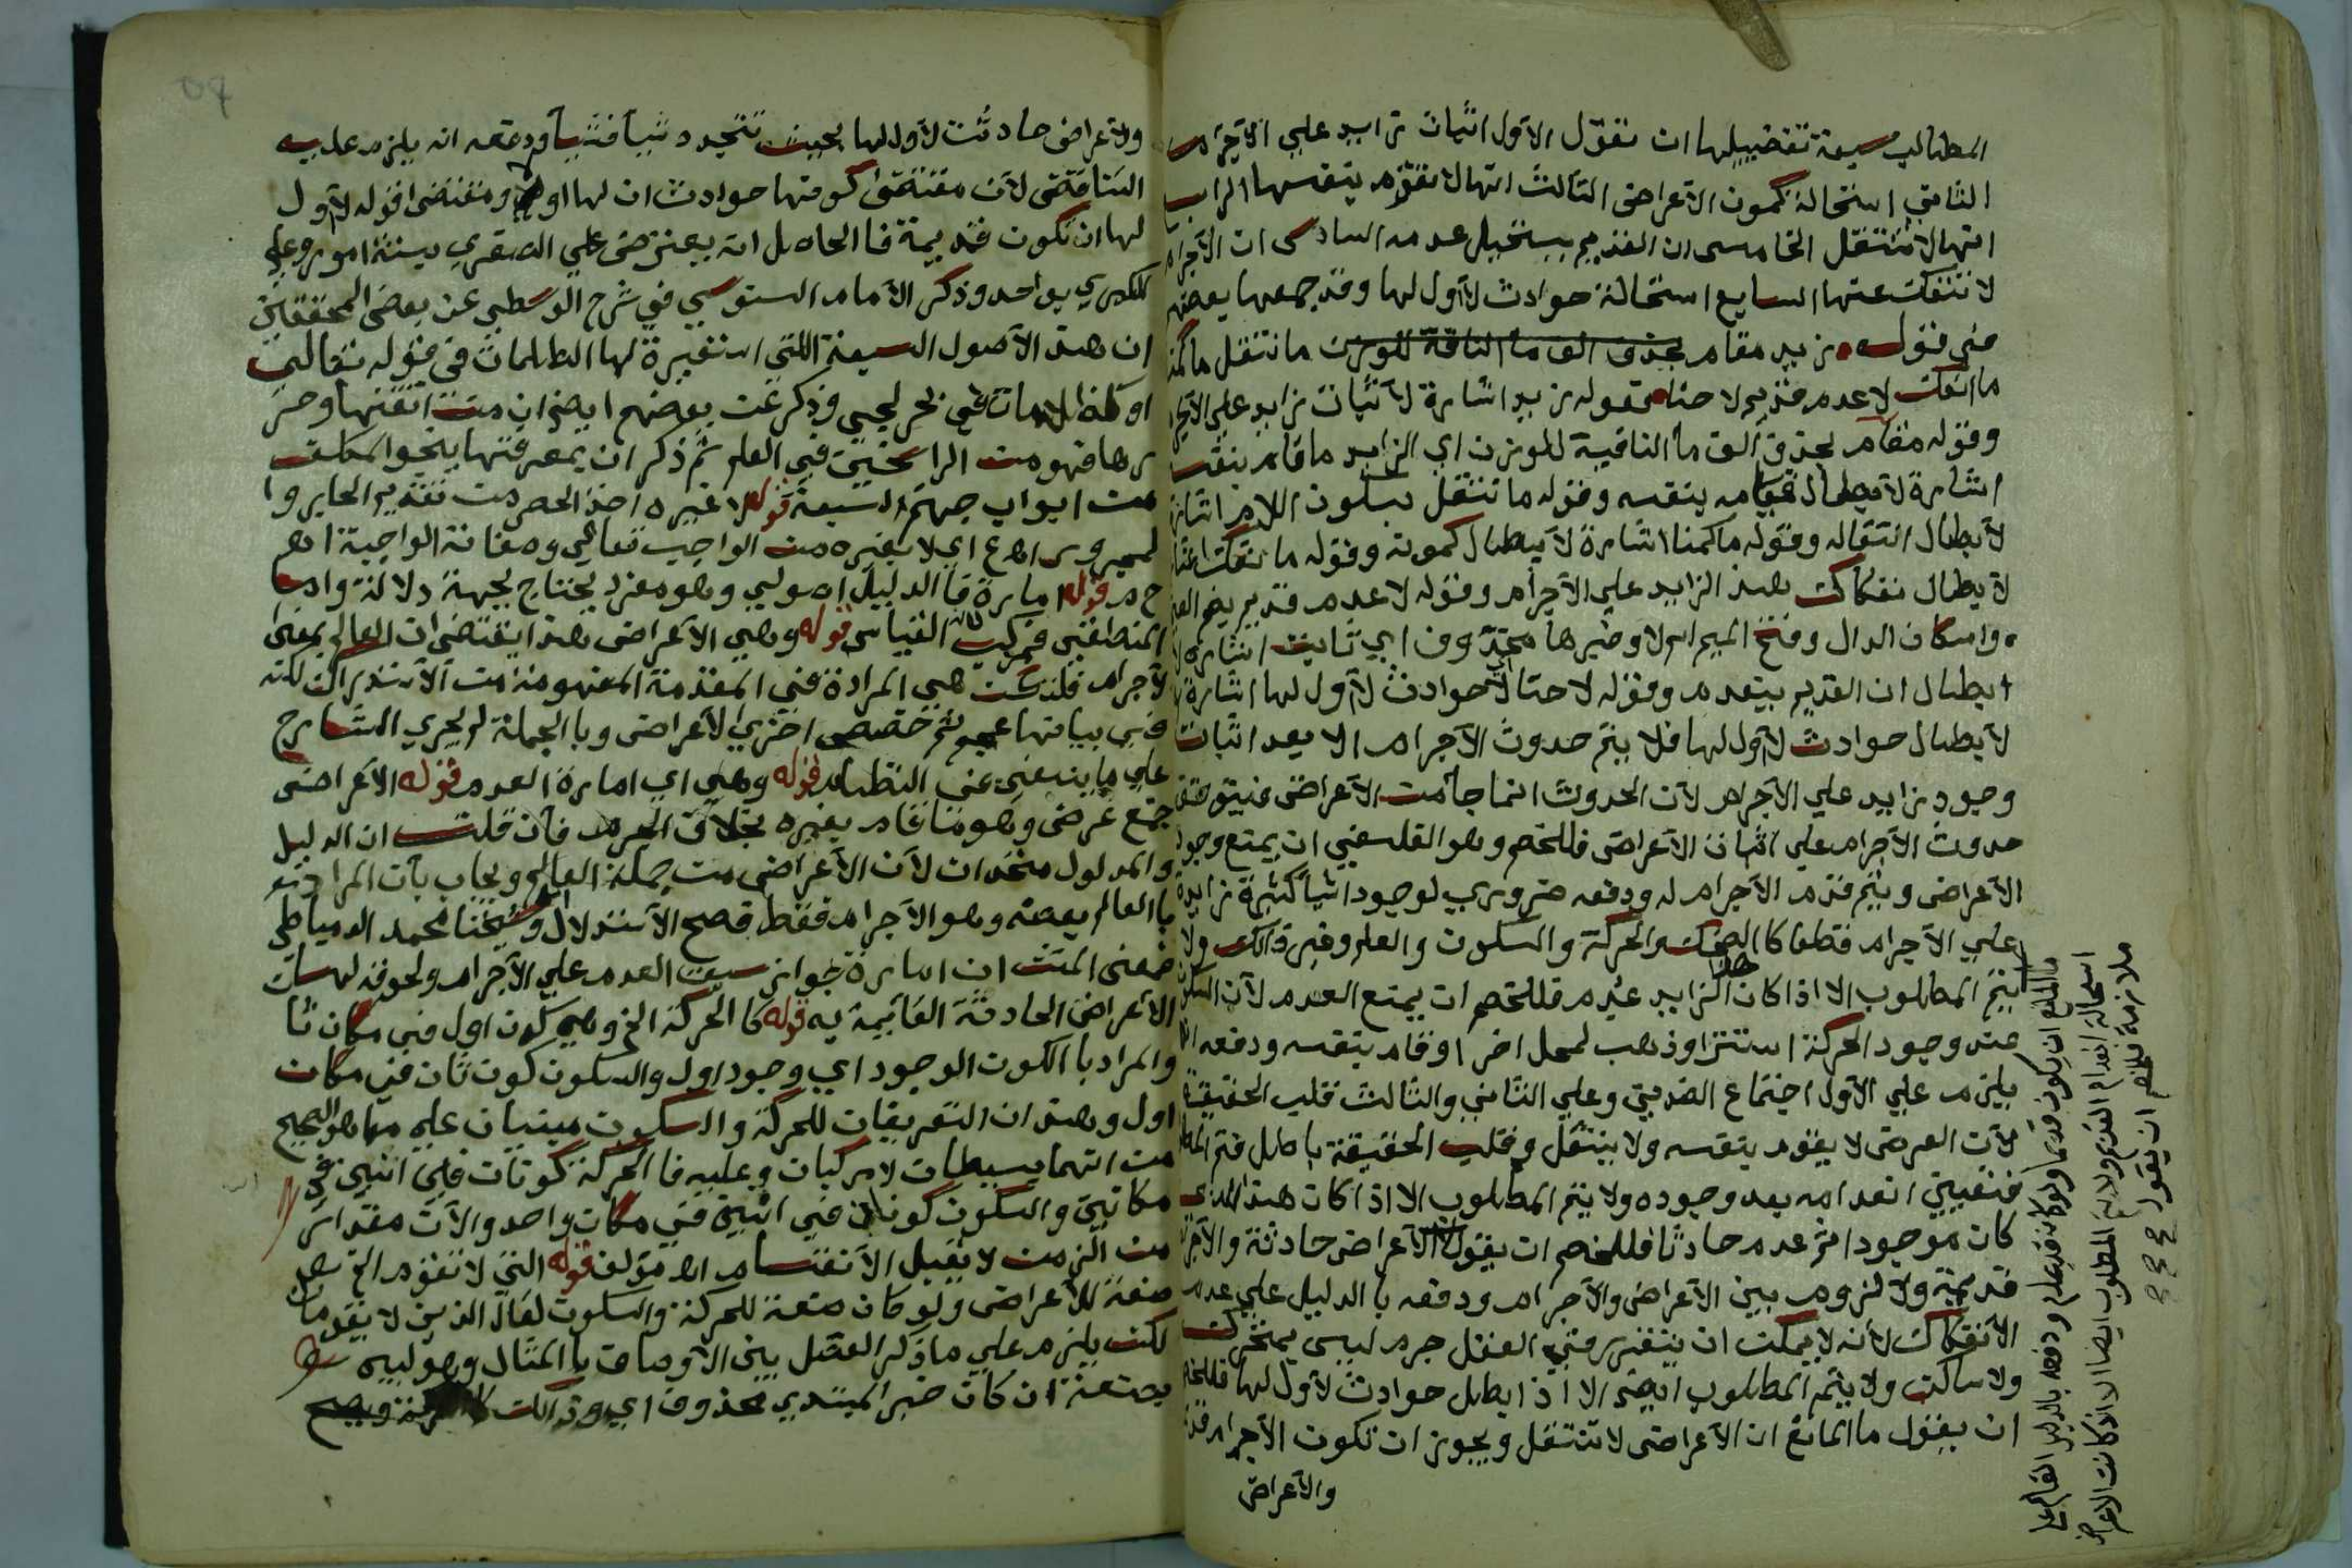 المطالب سبعة تفضيلها ان نقول الاول اثبات زايد علي الاجرام
الثاني استحالة كمون الاعراض الثالث انها لا تقوم بنفسها الرابع
انها لا تنتقل الخامس ان القديم يستحيل عدمه السادس ان الاجرام
لا تنفك عنها السابع استحالة حوادث لا اول لها وقد جمعها بعضهم
في قوله زيد مقام بحذف الف ما النافة للوزن ما انتقل ما كمنا
ما انفك لا عدم قديم لا حنا فقوله زيد اشارة لاثبات زايد علي الاجرام
وقوله مقام بحذف الف ما النافية للوزن اي الزايد ما قام بنفسه
اشارة لابطال قيامه بنفسه وقوله ما تنتقل بسكون اللام اشارة
لابطال انتقاله وقوله ما كمنا اشارة لابطال كمونه وقوله ما نفك اشارة
لابطال نفكاك هذا الزايد علي الاجرام وقوله لا عدم قديم بضم العين
واسكان الدال وفتح الميم اسم لا وخبرها محذوف اي ثابت اشارة
ابطال ان القديم ينعدم وقوله لا حنا اي لا حوادث لا اول لها اشارة
لابطال حوادث لا اول لها فلا يتم حدوث الاجرام الا بعد اثبات
وجود زايد علي الاجرام لان الحدوث انما جا من الاعراض فيتوقف
حدوث الاجرام علي اثبات الاعراض فللخصم وهو الفلسفي ان يمنع وجود
الاعراض ويتم قدم الاجرام له ودفعه ضروري لوجود اشيا كثيرة زايدة
علي الاجرام قطعا كالضحك والحركة والسكون والعلم وغير ذالك ولا
يتم المطلوب الا اذا كان هذا الزايد عدم فللخصم ان يمنع العدم لان السكون
عند وجود الحركة استتر او ذهب لمحل اخر او قام بنفسه ودفعه انه
يلزم علي الاول اجتماع الضدين وعلي الثاني والثالث قلب الحقيقة
لان العرض لا يقوم بنفسه ولا ينتقل وقلب الحقيقة باطل فتم المطلوب
فتعين انعدامه بعد وجوده ولا يتم المطلوب الا اذا كان هذا الذي
كان موجودا ثم عدم حادثا فللخصم ان يقول الاعراض حادثة والاجرام
قديمة ولا لزوم بين الاعراض والاجرام ودفعه بالدليل علي عدم
الانفكاك لانه لا يمكن ان يتقرر في العقل جرم ليس بمتحرك
ولا ساكن ولا يتم المطلوب ايضا الا اذا ابطل حوادث لا اول لها فللخصم
ان يقول ما المانع ان الاعراض لا تنتقل ويجوز ان تكون الاجرام قديمة
والاعراض
ما المانع ان يكون قديما ولو كان قديما عدم ودفعه بالدليل القايم علي
استحالة انعدام القديم ولا يتم المطلوب ايضا الا اذا كانت الاعراض
ملازمة فللخصم ان يقول
والاعراض حادثت لا اول لها بحيث تتجدد شيا فشيا ودفعه انه يلزم عليه
التناقض لان مقتضى كونها حوادث ان لها اول ومقتضى قوله لا اول
لها ان تكون قديمة فالحاصل انه يعترض علي الصغري بستة امور وعلي
الكبري بواحد وذكر الامام السنوسي في شرح الوسطي عن بعض المحققين
ان هذه الاصول السبعة اللتي استقيرة لها الظلمات في قوله تعالي
او كظلمات في بحر لجي وذكر عن بعضهم ايضا ان من اتقنها وحر
رها فهو من الراسخين في العلم ثم ذكر ان بمعرفتها ينجوا المكلف
من ابواب جهنم السبعة قوله لا غيره اخذ الحصر من تقديم الجار وا
لمجرور اهع اي لا بغيره من الواجب تعالي وصفاته الواجبة اهم
ح م قوله امارة فالدليل اصولي وهو مفرد يحتاج لجهة دلالة واما
المنطقي فمركب كالقياس قوله وهي الاعراض هذا يقتضي ان العالم بمعنى
الاجرام قلت هي المرادة في المقدمة المفهومة من الاستدراك لكنه
في بيانها عمم ثم خصص اخري الاعراض وبالجملة لم يجري الشارح
علي ما ينبغي عن النظام قوله وهي اي امارة العدم قوله الاعراض
جمع عرض وهو ما قام بغيره بخلاف الجرم فان قلت ان الدليل
والمدلول متحدان لان الاعراض من جملة العالم ويجاب بان المراد
بالعالم بعضه وهو الاجرام فقط فصح الاستدلال اهـ وشيخنا محمد الدمياطي
فمعنى المتن ان امارة جواز سبق العدم علي الاجرام ولحوقه لها
الاعراض الحادثة القايمة به قوله كالحركة الخ وهي كون اول في مكان ثا
والمراد بالكون الوجود اي وجود اول والسكون كون ثان في مكان
اول وهذان التعريفان للحركة والسكون مبنيان علي ما هو الصحيح
من انهما بسيطان لا مركبان وعليه فالحركة كونان في انين في
مكانين والسكون كونان في انين في مكان واحد والان مقدار
من الزمن لا يقبل الانقسام اهـ مؤلف قوله التي لا تقوم الخ
صفة للاعراض ولو كان صفة للحركة والسكون لقال الذين لا يقومان
لكن يلزم علي ما ذكر الفصل بين الاوصاف بالمثال وهو ليس
بصنعة ان كان خبر المبتدي محذوف اي وذالك كالحركة ويصح